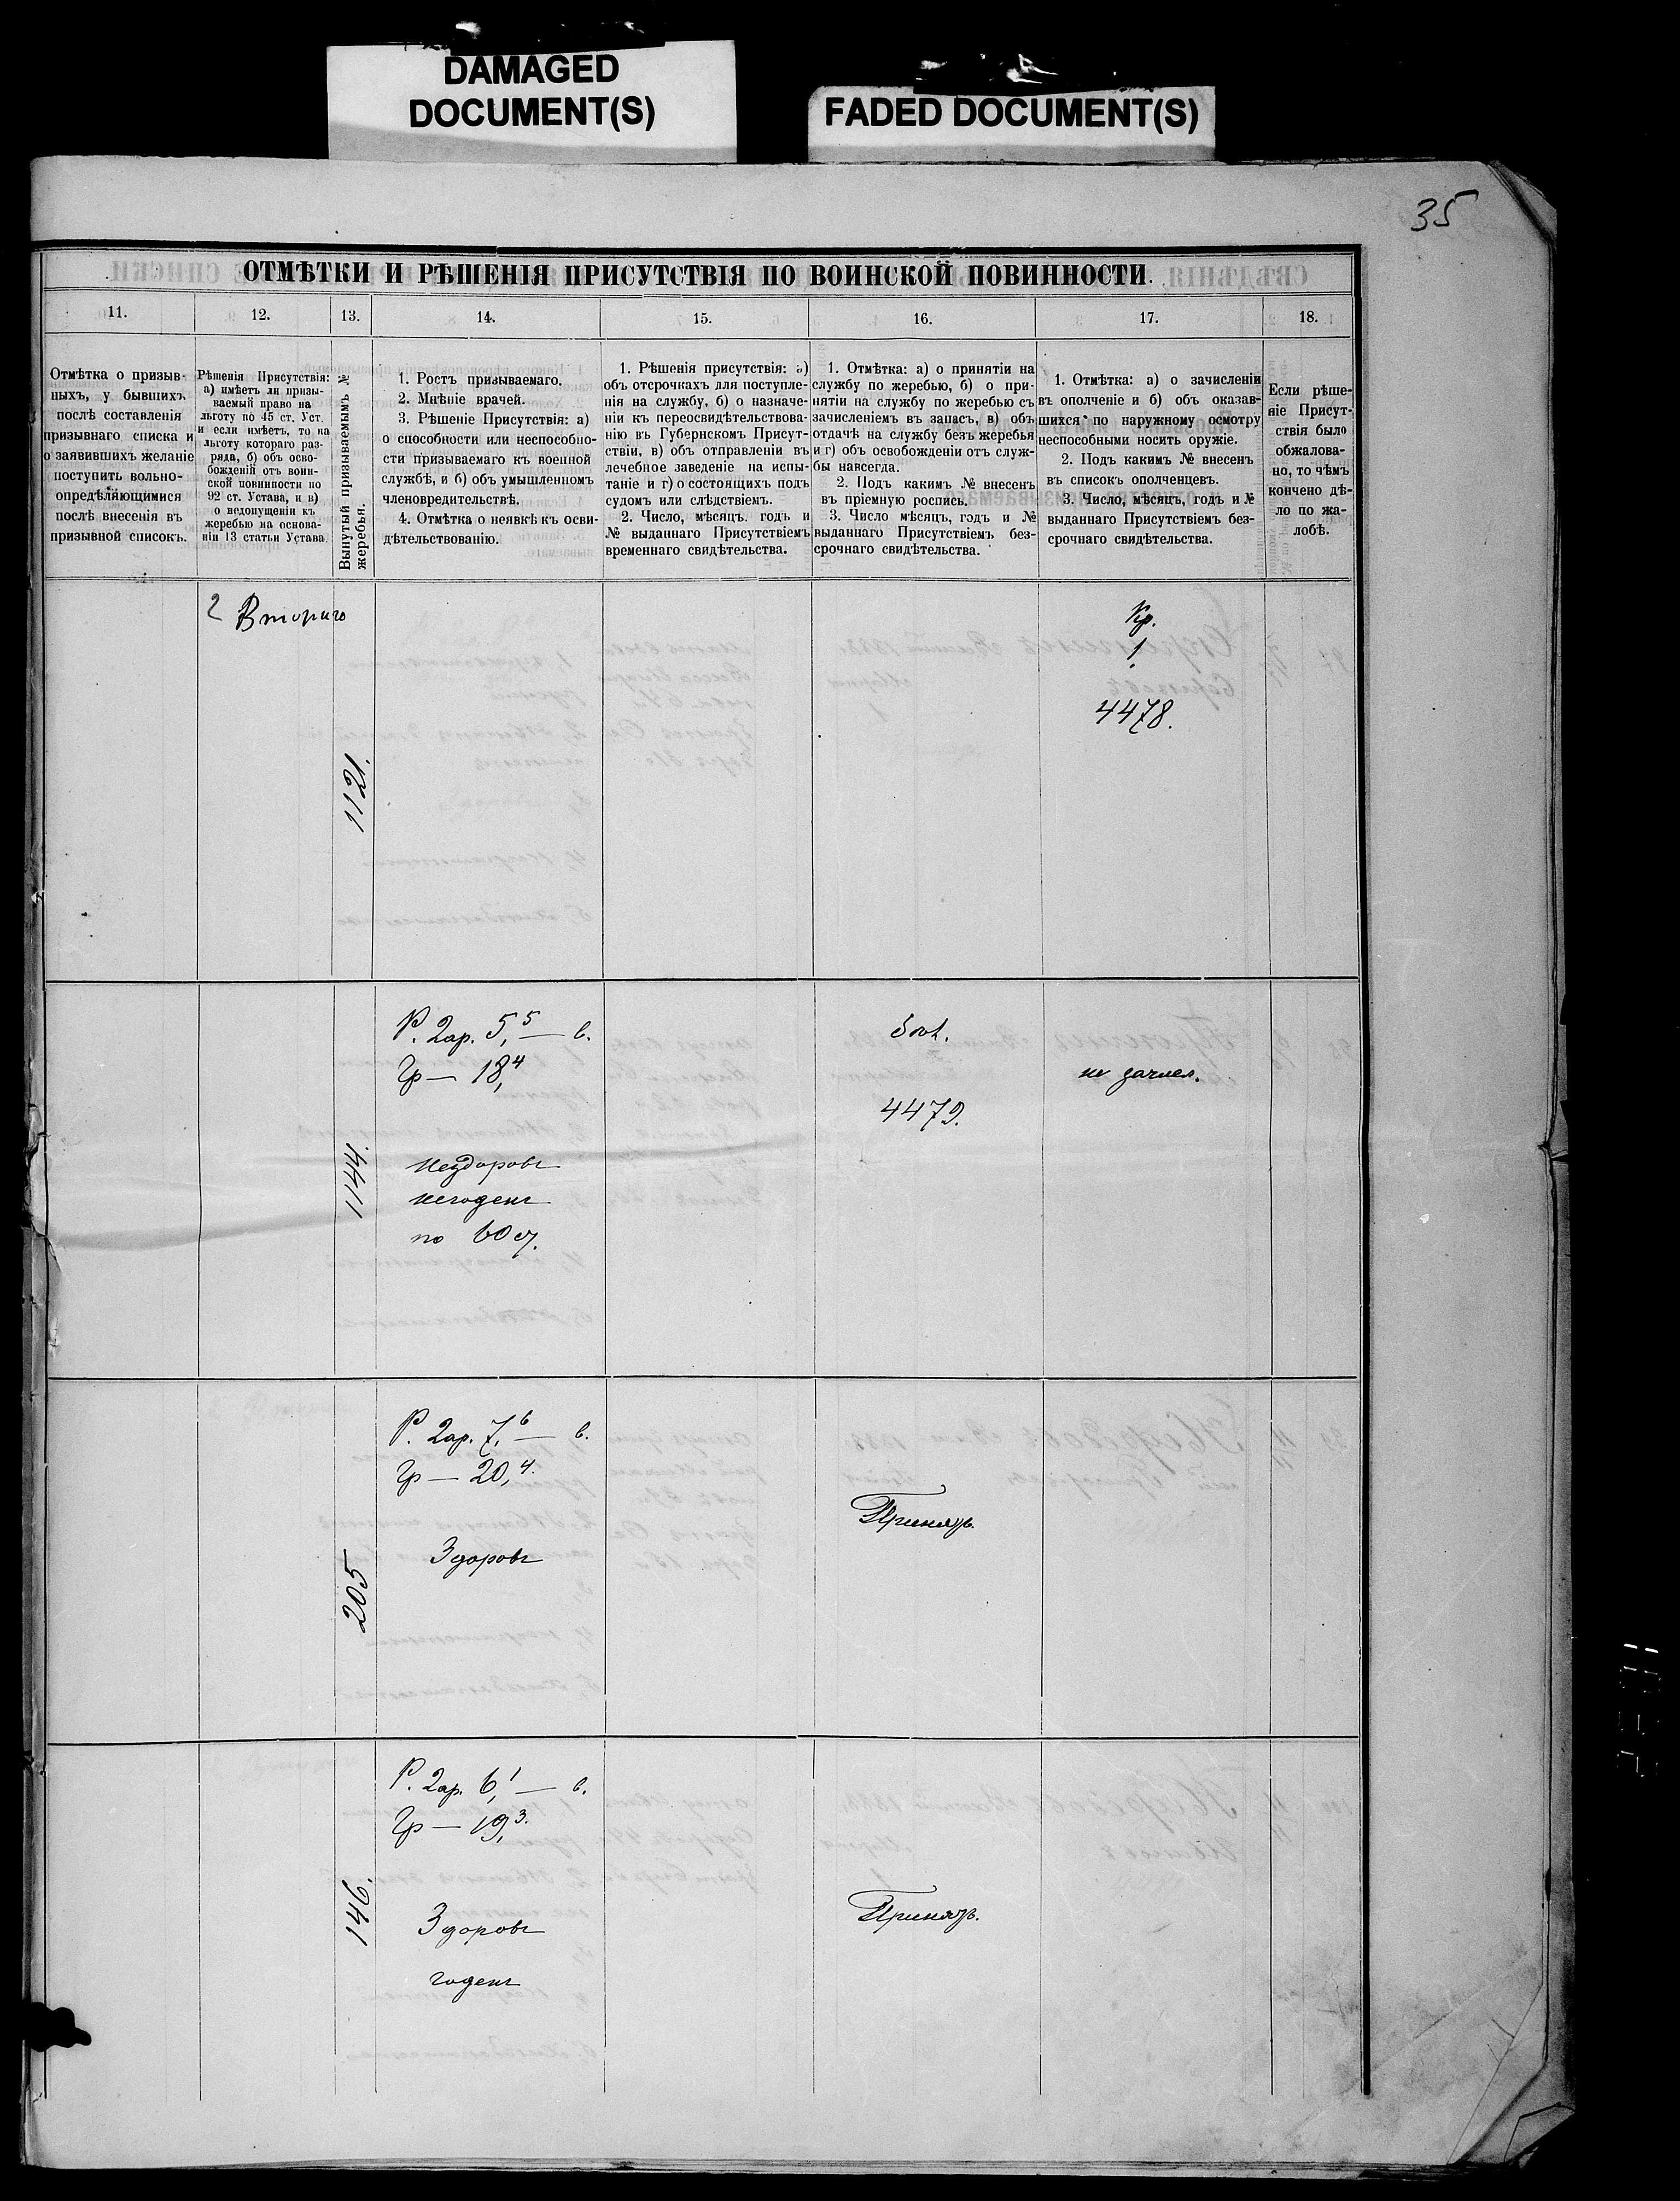 DAMAGED
DOCUMENT(S)
FADED DOCUMENT(S)
35
ОТМѢТКИ И РѢШЕНІЯ ПРИСУТСТВІЯ ПО ВОИНСКОЙ ПОВИННОСТИ.
11.
12.
13.
14.
15.
16.
17.
18.
Отмѣтка о призыв-
ныхъ, у бывшихъ
послѣ составленія
призывнаго списка и
о заявившихъ желаніе
поступить вольно-
опредѣляющимися
послѣ внесенія въ
призывной списокъ.
Рѣшенія Присутствія:
а) имѣетъ ли призы-
ваемый право на
льготу по 45 ст. Уст.
и если имѣетъ, то на
льготу котораго раз-
ряда, б) объ осво-
божденіи отъ воин-
ской повинности по
92 ст. Устава, и в)
о недопущеніи къ
жеребью на основа-
ніи 13 статьи Устава
Вынутый призываемымъ №
жеребья.
1. Ростъ призываемаго.
2. Мнѣніе врачей.
3. Рѣшеніе Присутствія: а)
о способности или неспособно-
сти призываемаго къ военной
службѣ, и б) объ умышленномъ
членовредительствѣ.
4. Отмѣтка о неявкѣ къ осви-
дѣтельствованію.
1. Рѣшенія присутствія: а)
объ отсрочкахъ для поступле-
нія на службу, б) о назначе-
ніи къ переосвидѣтельствова-
нію въ Губернскомъ Присут-
ствіи, в) объ отправленіи въ
лечебное заведеніе на испы-
таніе и г) о состоящихъ подъ
судомъ или слѣдствіемъ.
2. Число, мѣсяцъ. годъ и
№ выданнаго Присутствіемъ
временнаго свидѣтельства.
1. Отмѣтка: а) о принятіи на
службу по жеребью, б) о при-
нятіи на службу по жеребью съ
зачисленіемъ въ запасъ, в) объ
отдачѣ на службу безъ жеребья
и г) объ освобожденіи отъ служ-
бы навсегда.
2. Подъ какимъ № внесенъ
въ пріемную роспись.
3. Число мѣсяцъ, годъ и №
выданнаго Присутствіемъ без-
срочнаго свидѣтельства.
1. Отмѣтка: а) о зачисленіи
въ ополченіе и б) объ оказав-
шихся по наружному осмотру
неспособными носить оружіе.
2. Подъ какимъ № внесенъ
въ списокъ ополченцевъ.
3. Число, мѣсяцъ, годъ и №
выданнаго Присутствіемъ без-
срочнаго свидѣтельства.
Если рѣше-
ніе Присут-
ствія было
обжалова-
но, то чѣмъ
кончено дѣ-
ло по жа-
лобѣ.
2 Втораго
1121.
Кр.
1
4478.
1144.
Р. 2ар. 5,5 — в.
Гр — 18,4
Нездоровъ
негоденъ
по 60 ст.
4479.
не зачисл.
205
Р. 2ар. 7,6 — в.
Гр — 20,4.
Здоровъ
Принятъ.
146.
Р. 2ар. 6,1 — в.
Гр — 19,3.
Здоровъ
годенъ
Принятъ.